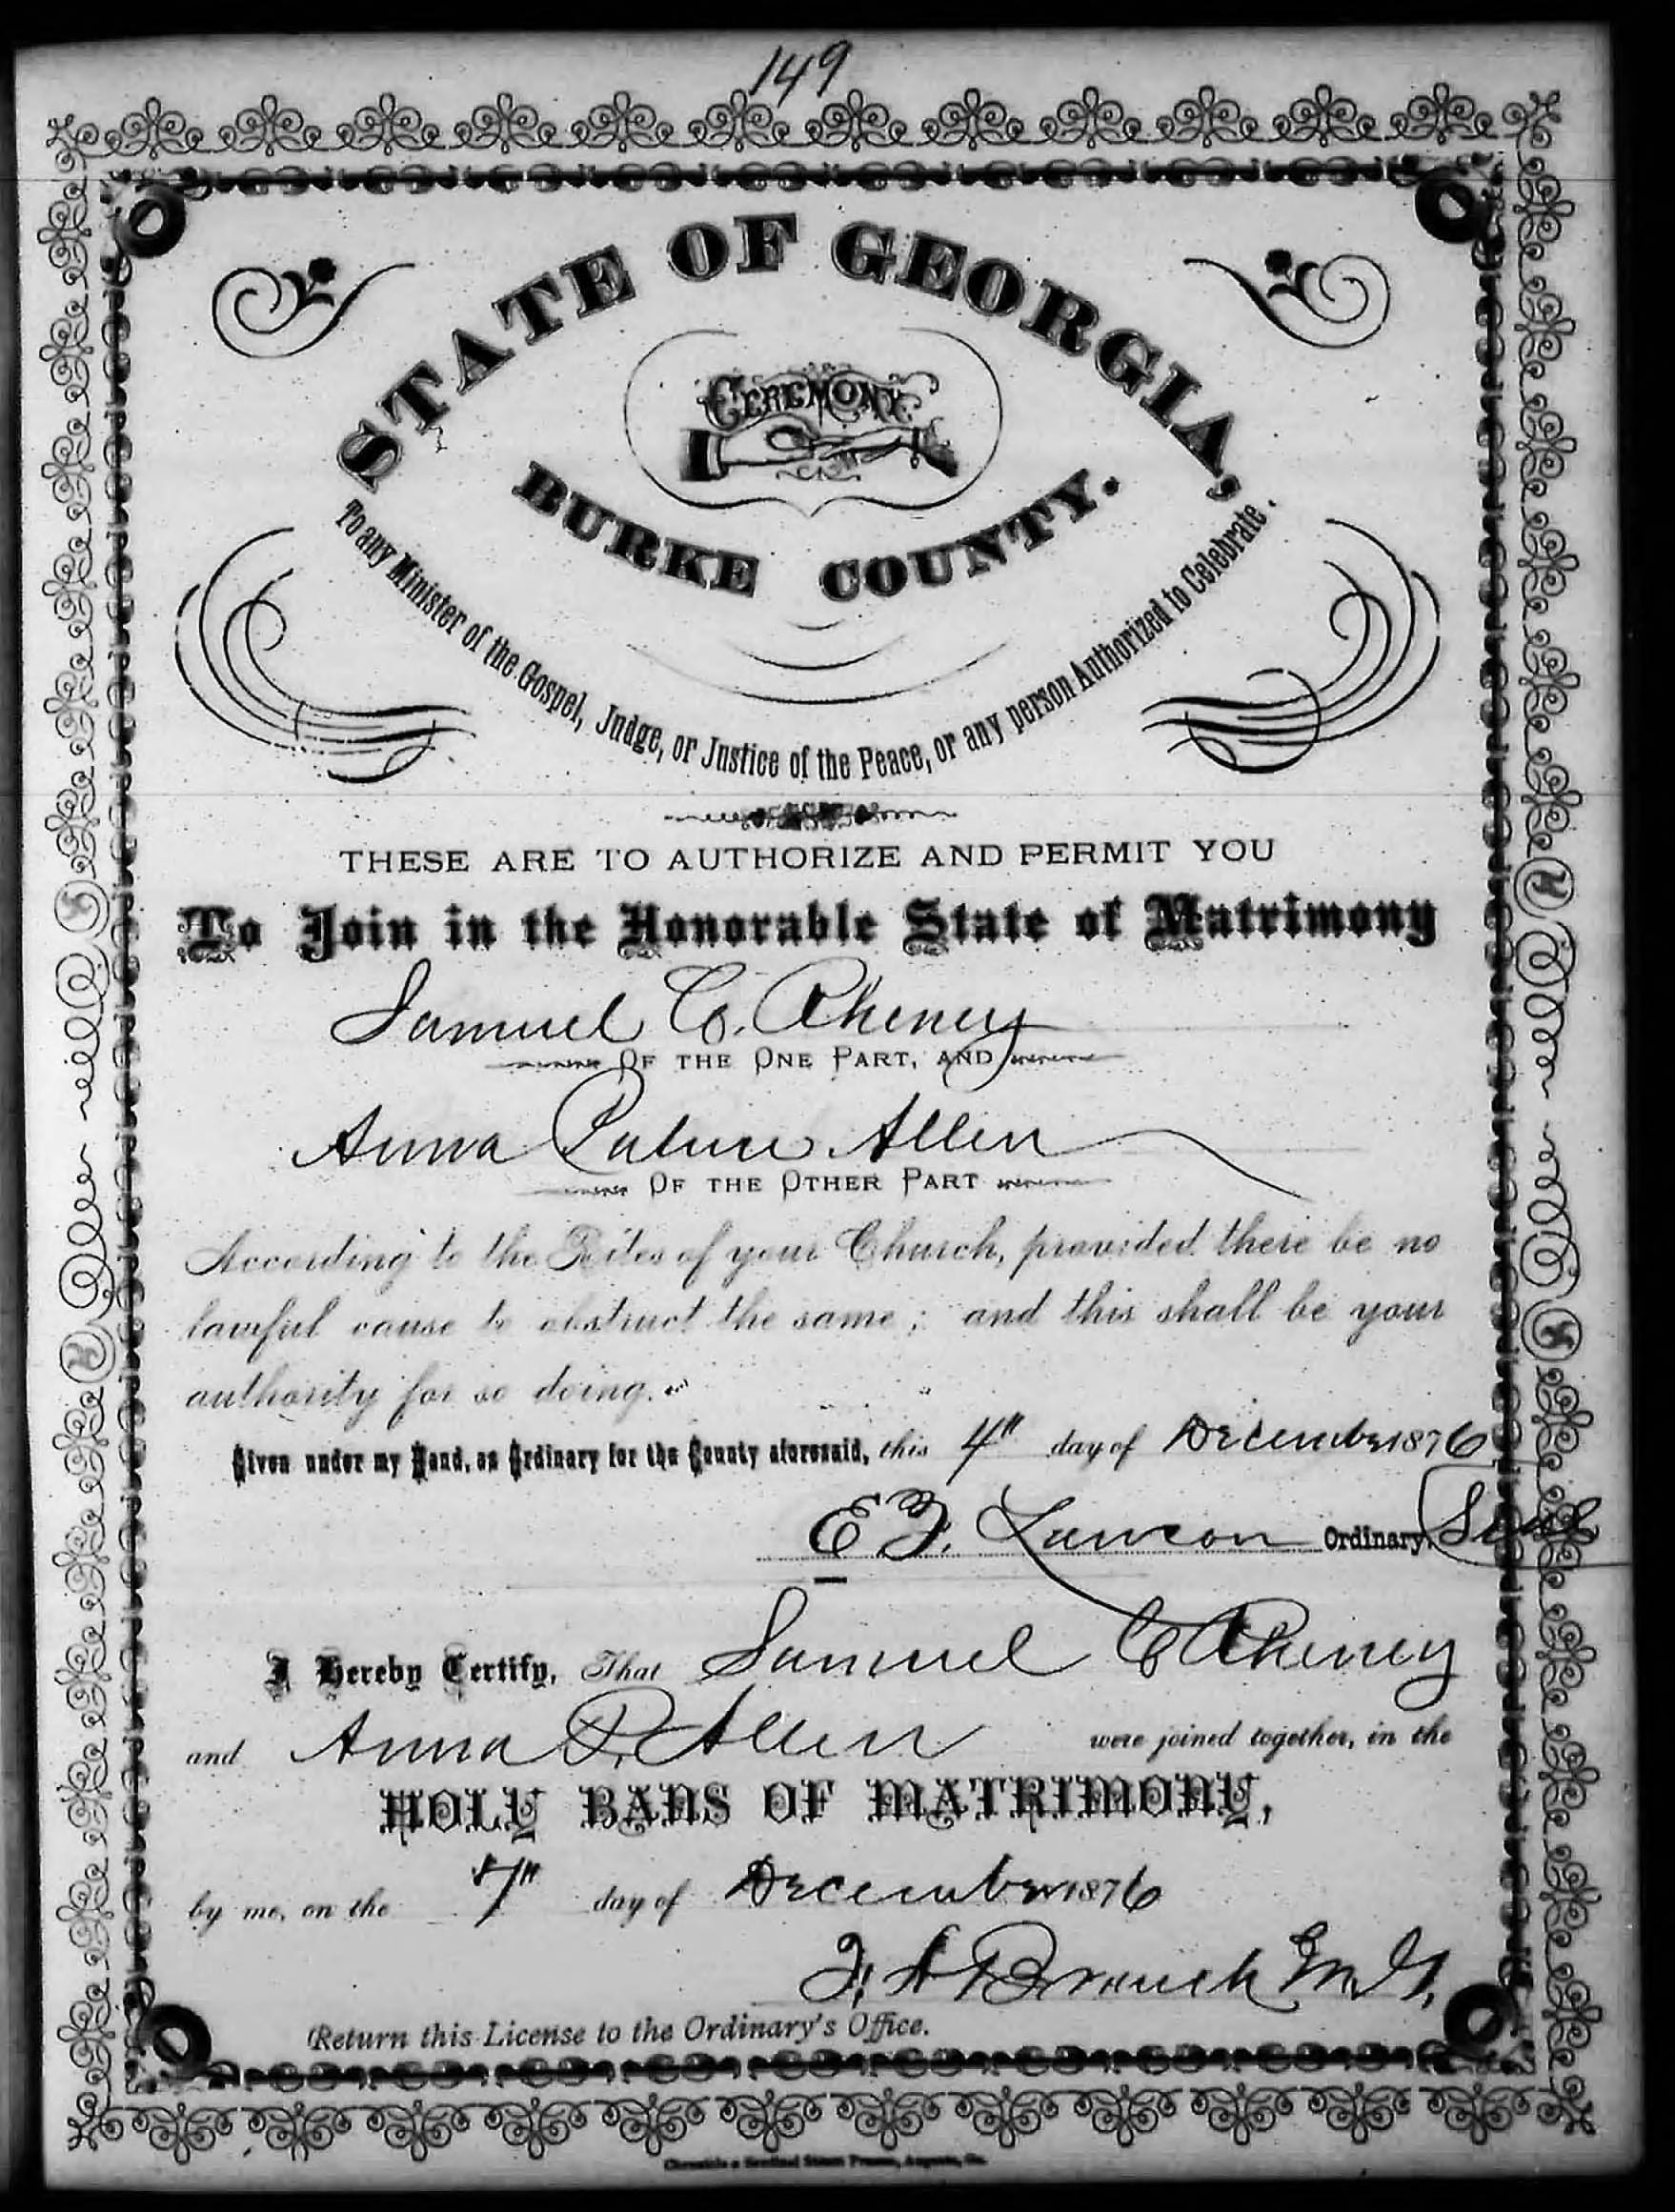 149
STATE OF GEORGIA,
CEREMONY.
BURKE COUNTY.
To any Minister of the Gospel, Judge, or Justice of the Peace, or any person Authorized to Celebrate.
THESE ARE TO AUTHORIZE AND PERMIT YOU
To Join in the Honorable State of Matrimony
Samuel C. Rheney
OF THE ONE PART, AND
Anna Allen
OF THE OTHER PART
According to the Rites of your Church, provided there be no
lawful cause to obstruct the same; and this shall be your
authority for so doing.
Given under my Hand, as Ordinary for the County aforesaid, this 4th day of December 1876
E F. Lawson Ordinary, Seal
I Hereby Certify, That Samuel C Rheney
and Anna P. Allen were joined together, in the
HOLY BANS OF MATRIMONY,
by me, on the 7th day of December 1876
F. A Branch M.G.
Return this License to the Ordinary's Office.
Chronicle & Sentinel Steam Presses, Augusta, Ga.